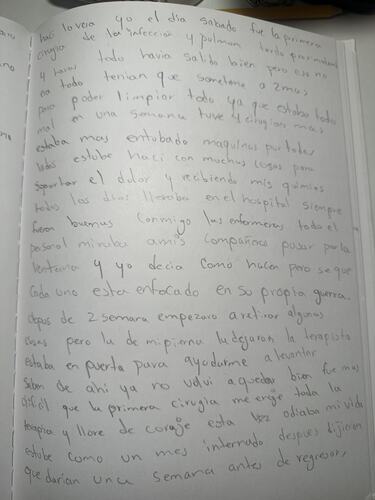 haci lo veia yo el dia sabado fue la primera
cirugia de la infeccion y pulmon tardo
y horas todo havia salido bien pero eso no
era todo tenian que someterme a 2 mas
para poder limpiar todo ya que estaba todo
mal en una semana tuve 4 cirugias mas
estaba mas entubado maquinas por todos
lados estube haci con muchas cosas para
soportar el dolor y recibiendo mis quimios
todos los dias lloraba en el hospital siempre
fueron buenas conmigo las enfermeras todo el
personal miraba a mis compañeros pasar por la
ventana y yo decia como hacen pero se que
cada uno esta enfocado en su propia guerra.
depues de 2 semana empezaro a retirar algunas
cosas pero la de mi pierna la dejaron la terapista
estaba en puerta para ayudarme a levantar
saben de ahi ya no volvi a quedar bien fue mas
dificil que la primera cirugia me enoje toda la
terapia y llore de coraje esta vez odiaba mi vida
estube como un mes internado despues dijieron
que darian una semana antes de regresar,